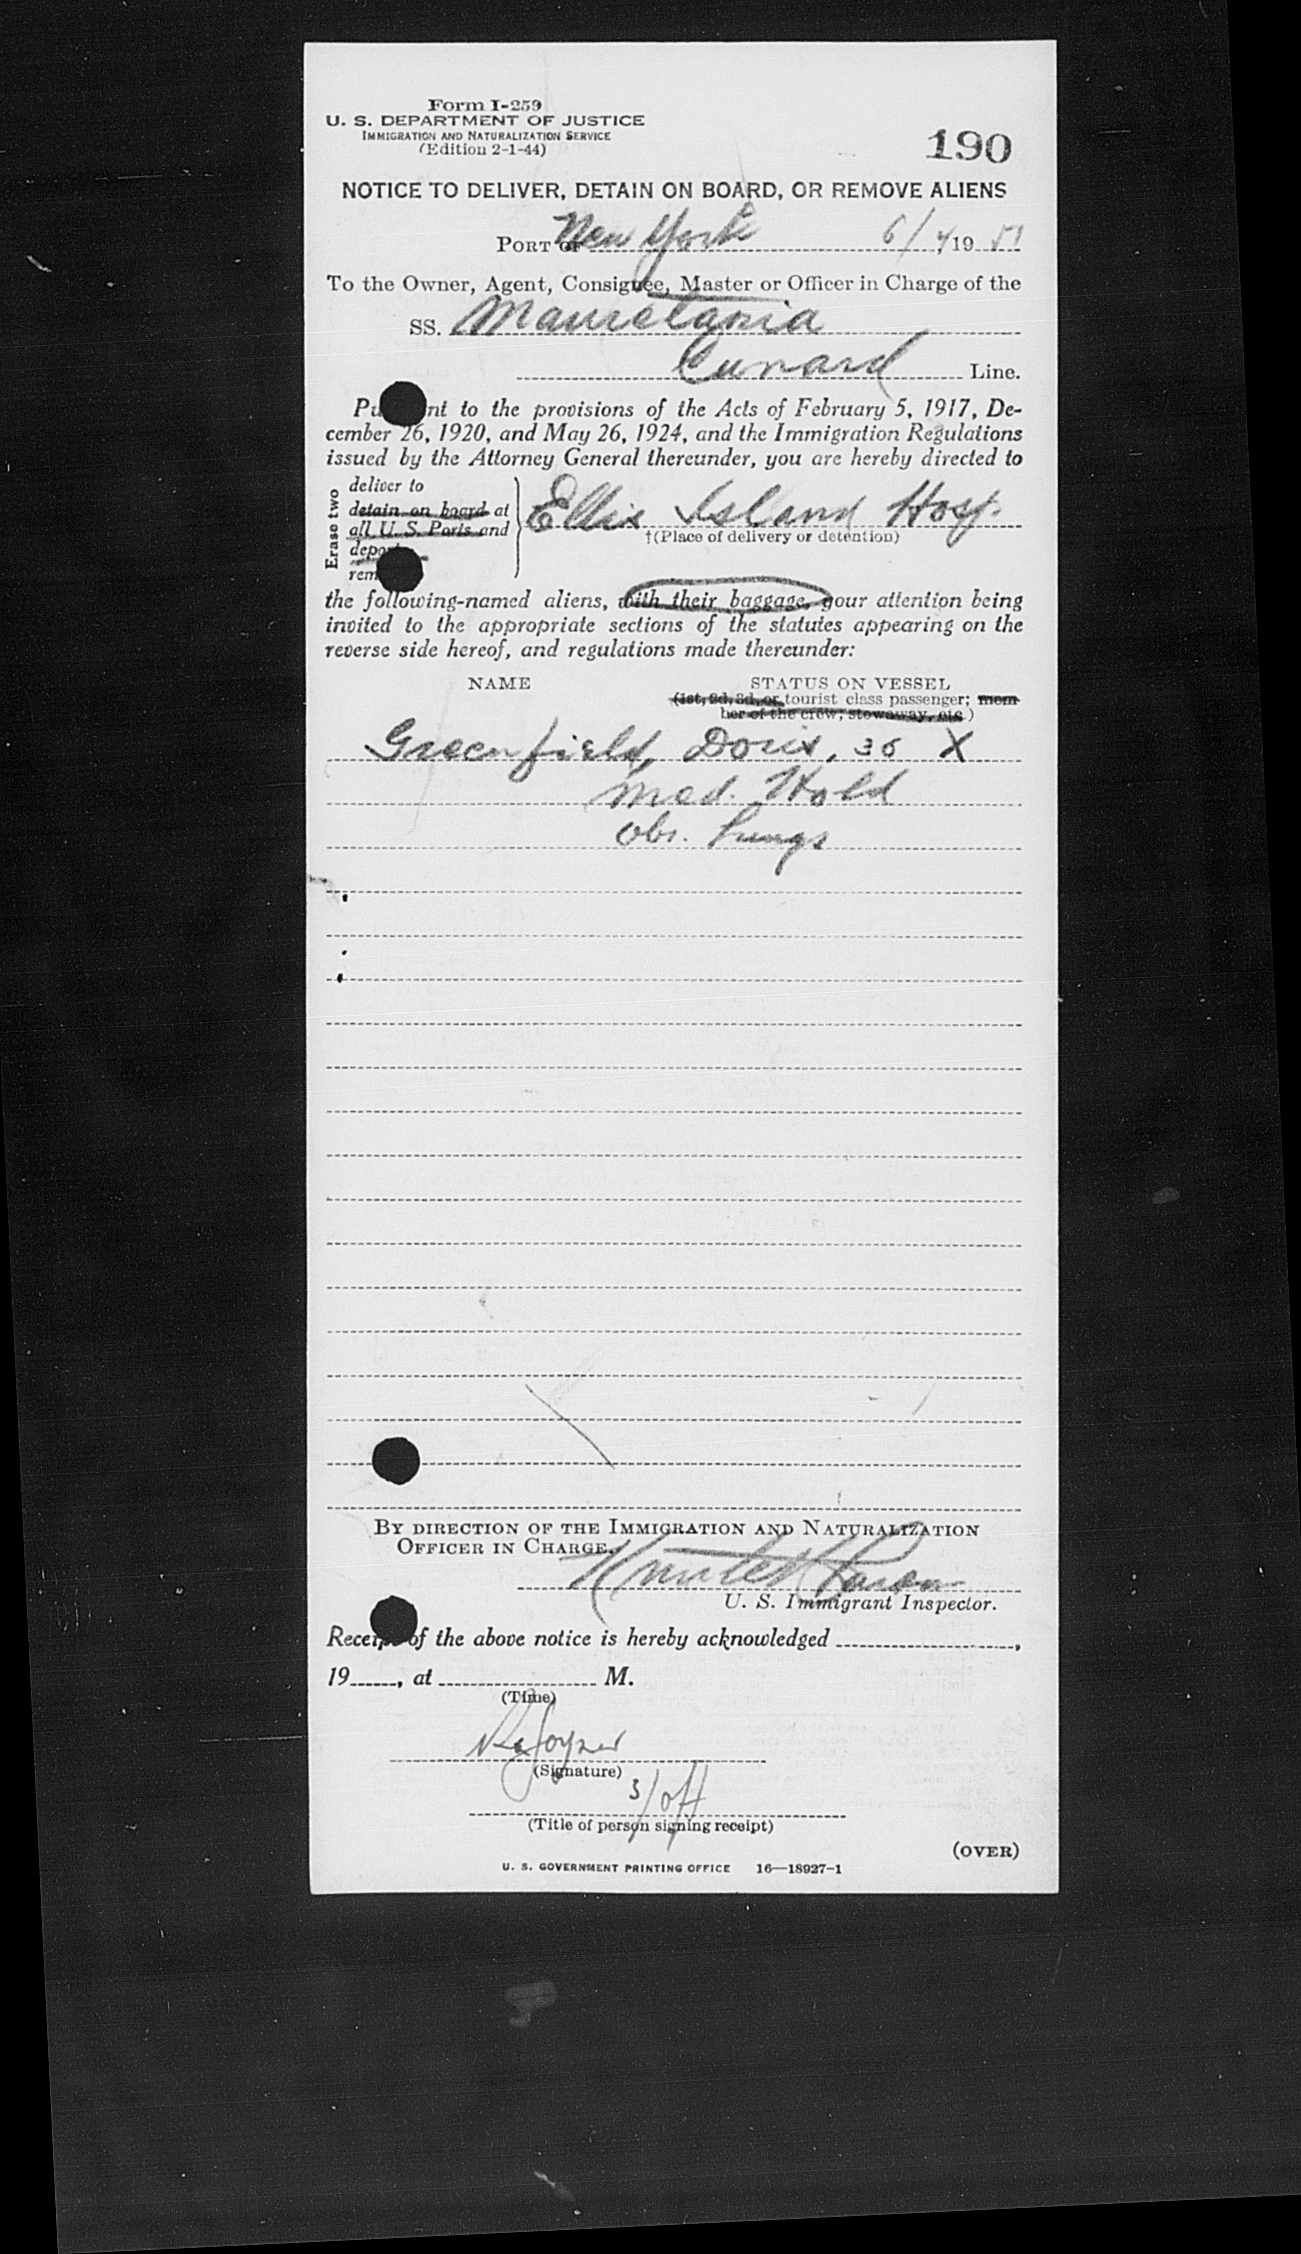 Form I-259
U. S. DEPARTMENT OF JUSTICE
IMMIGRATION AND NATURALIZATION SERVICE
(Edition 2-1-44)
190
NOTICE TO DELIVER, DETAIN ON BOARD, OR REMOVE ALIENS
PORT OF New York 6/4, 19 51
To the Owner, Agent, Consignee, Master or Officer in Charge of the
SS. Mauretania
Cunard Line.
to the provisions of the Acts of February 5, 1917, De-
cember 26, 1920, and May 26, 1924, and the Immigration Regulations
issued by the Attorney General thereunder, you are hereby directed to
Erase two
deliver to
detain on board at
all U. S. Ports and
Ellis Island Hosp.
†(Place of delivery or detention)
the following-named aliens, with their baggage, your attention being
invited to the appropriate sections of the statutes appearing on the
reverse side hereof, and regulations made thereunder:
NAME STATUS ON VESSEL
(1st, 2d, 3d, or tourist class passenger; mem-
ber of the crew, stowaway, etc.)
Greenfield, Doris, 36 X
Med. Hold
Obs. Lungs
BY DIRECTION OF THE IMMIGRATION AND NATURALIZATION
OFFICER IN CHARGE.
U. S. Immigrant Inspector.
Receipt of the above notice is hereby acknowledged ,
19 , at M.
(Time)
(Signature)
3/off
(Title of person signing receipt)
(OVER)
U. S. GOVERNMENT PRINTING OFFICE 16—18927-1